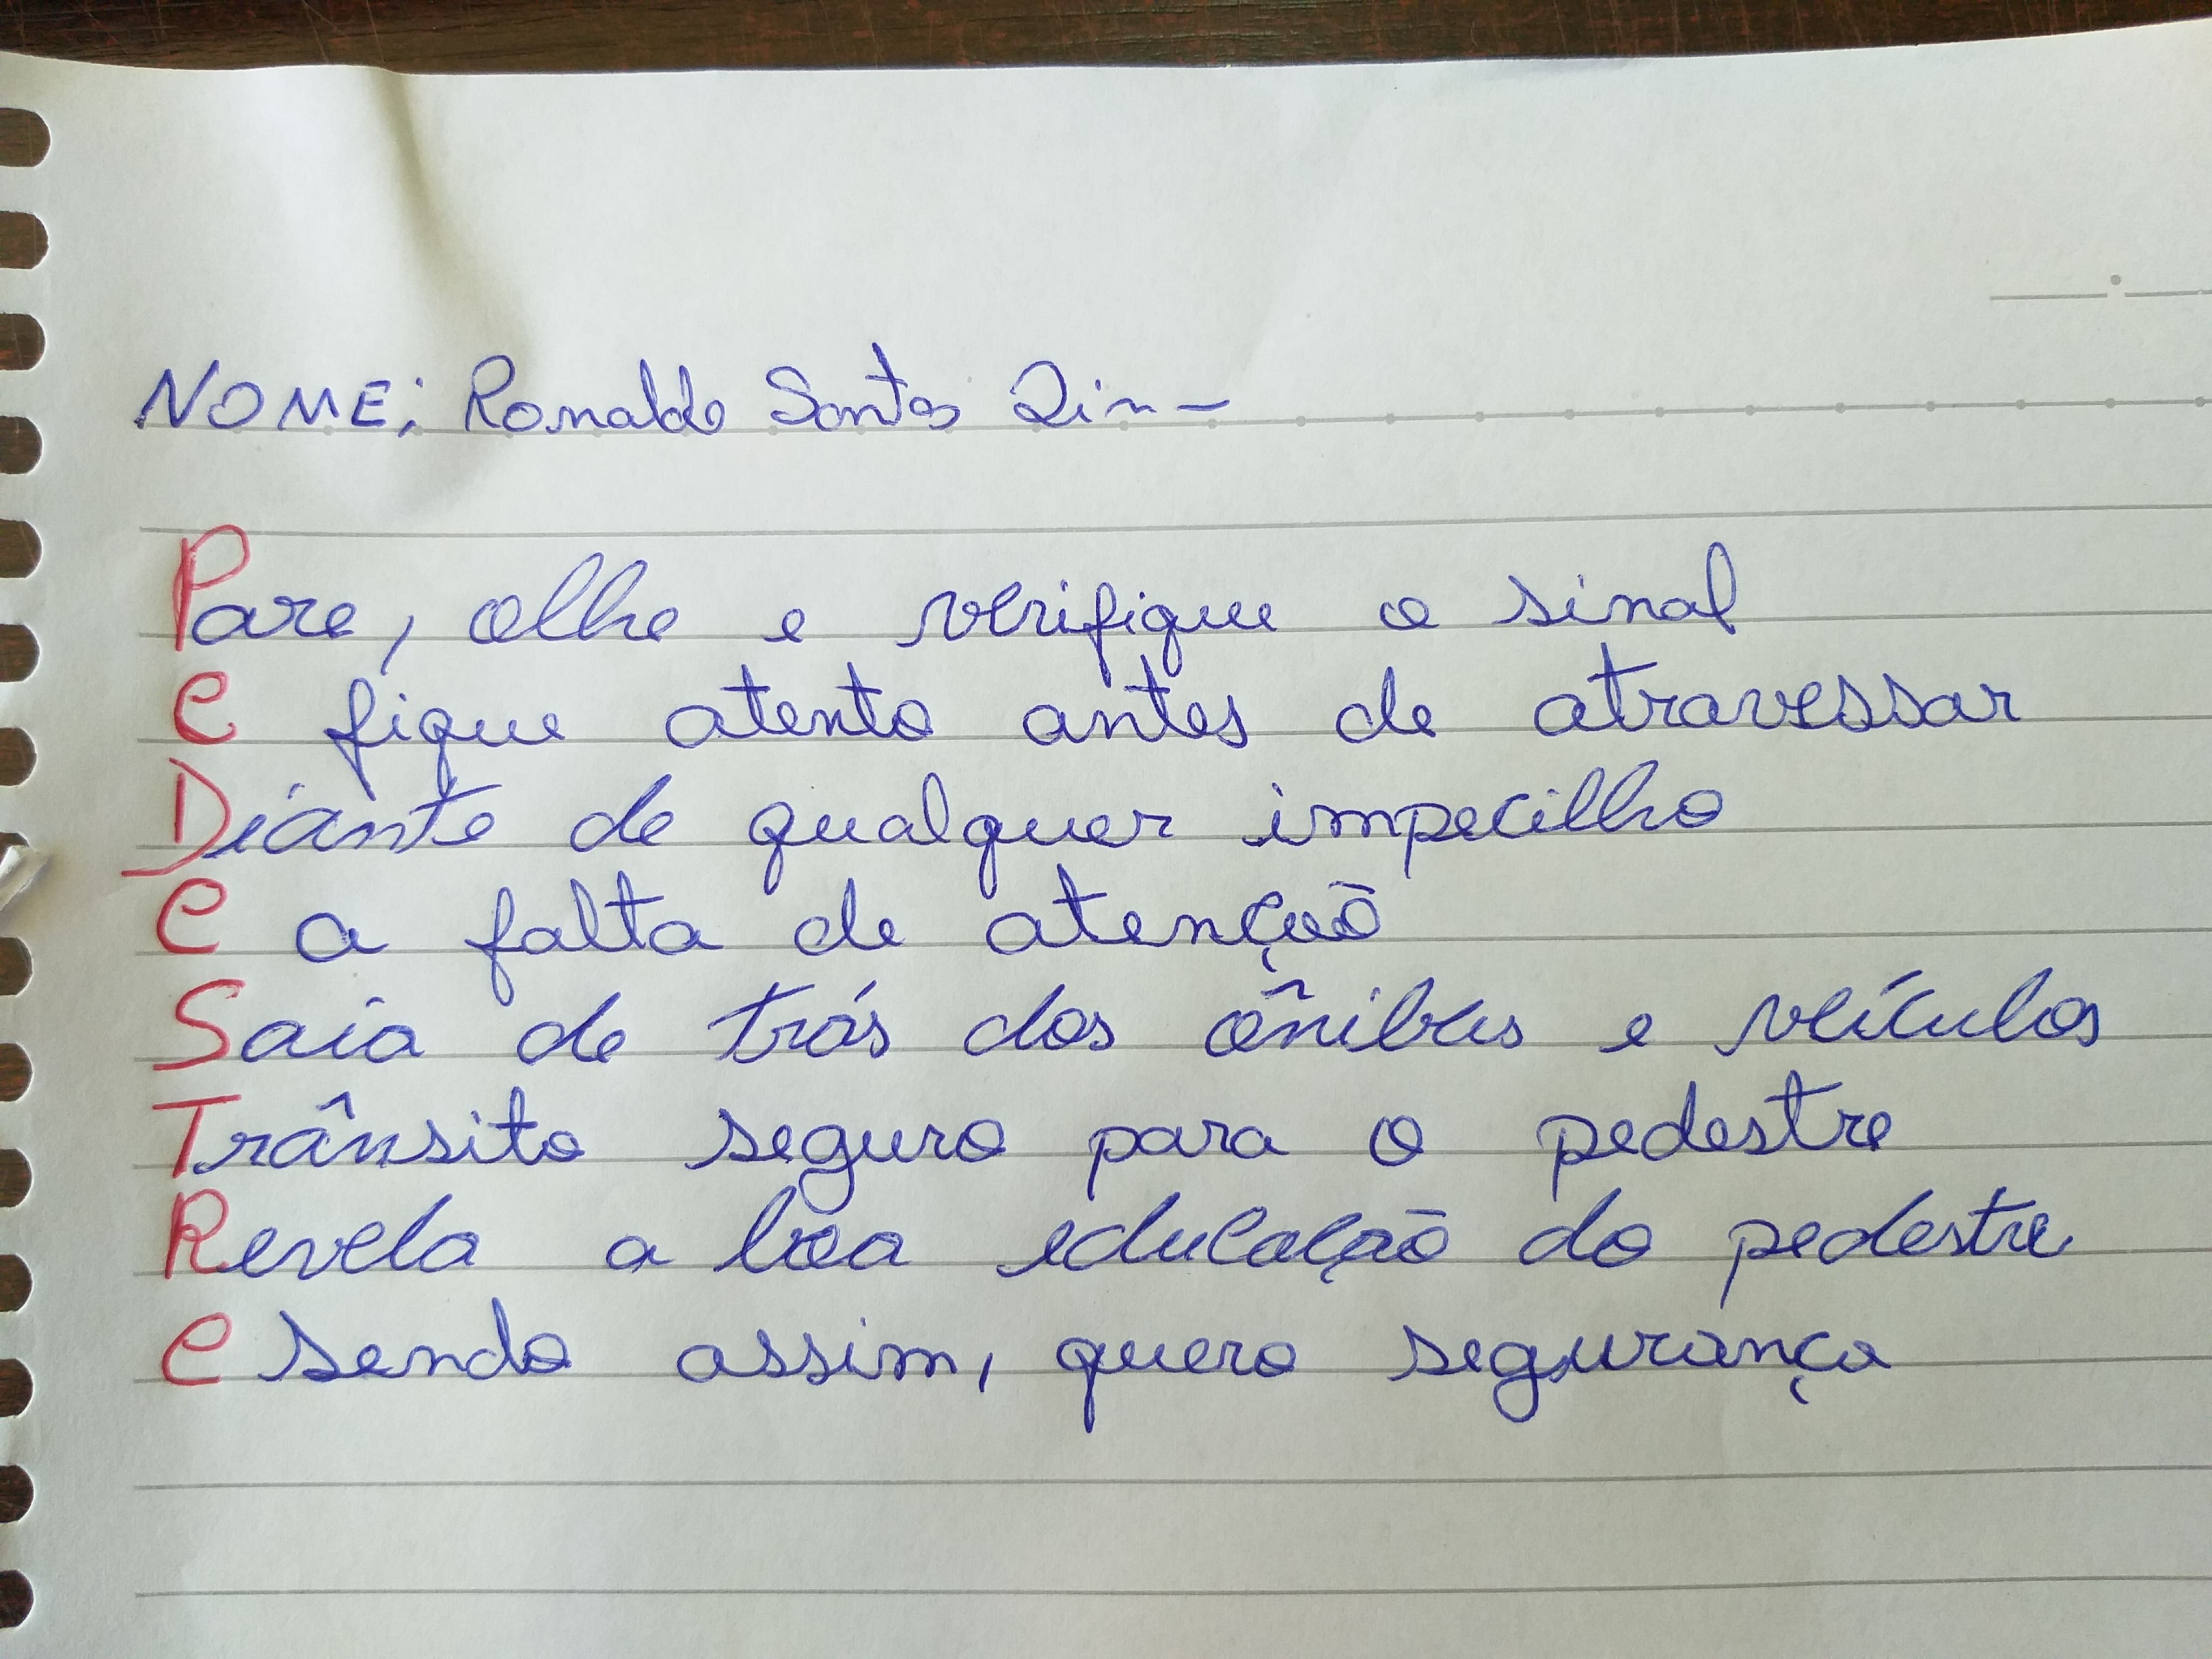 NOME: Ronaldo Santos
Pare, olhe e verifique o sinal
e fique atento antes de atravessar
Diante de qualquer impecilho
e a falta de atenção
Saia de trás dos ônibus e veículos
Trânsito seguro para o pedestre
Revela a boa educação do pedestre
e sendo assim, quero segurança